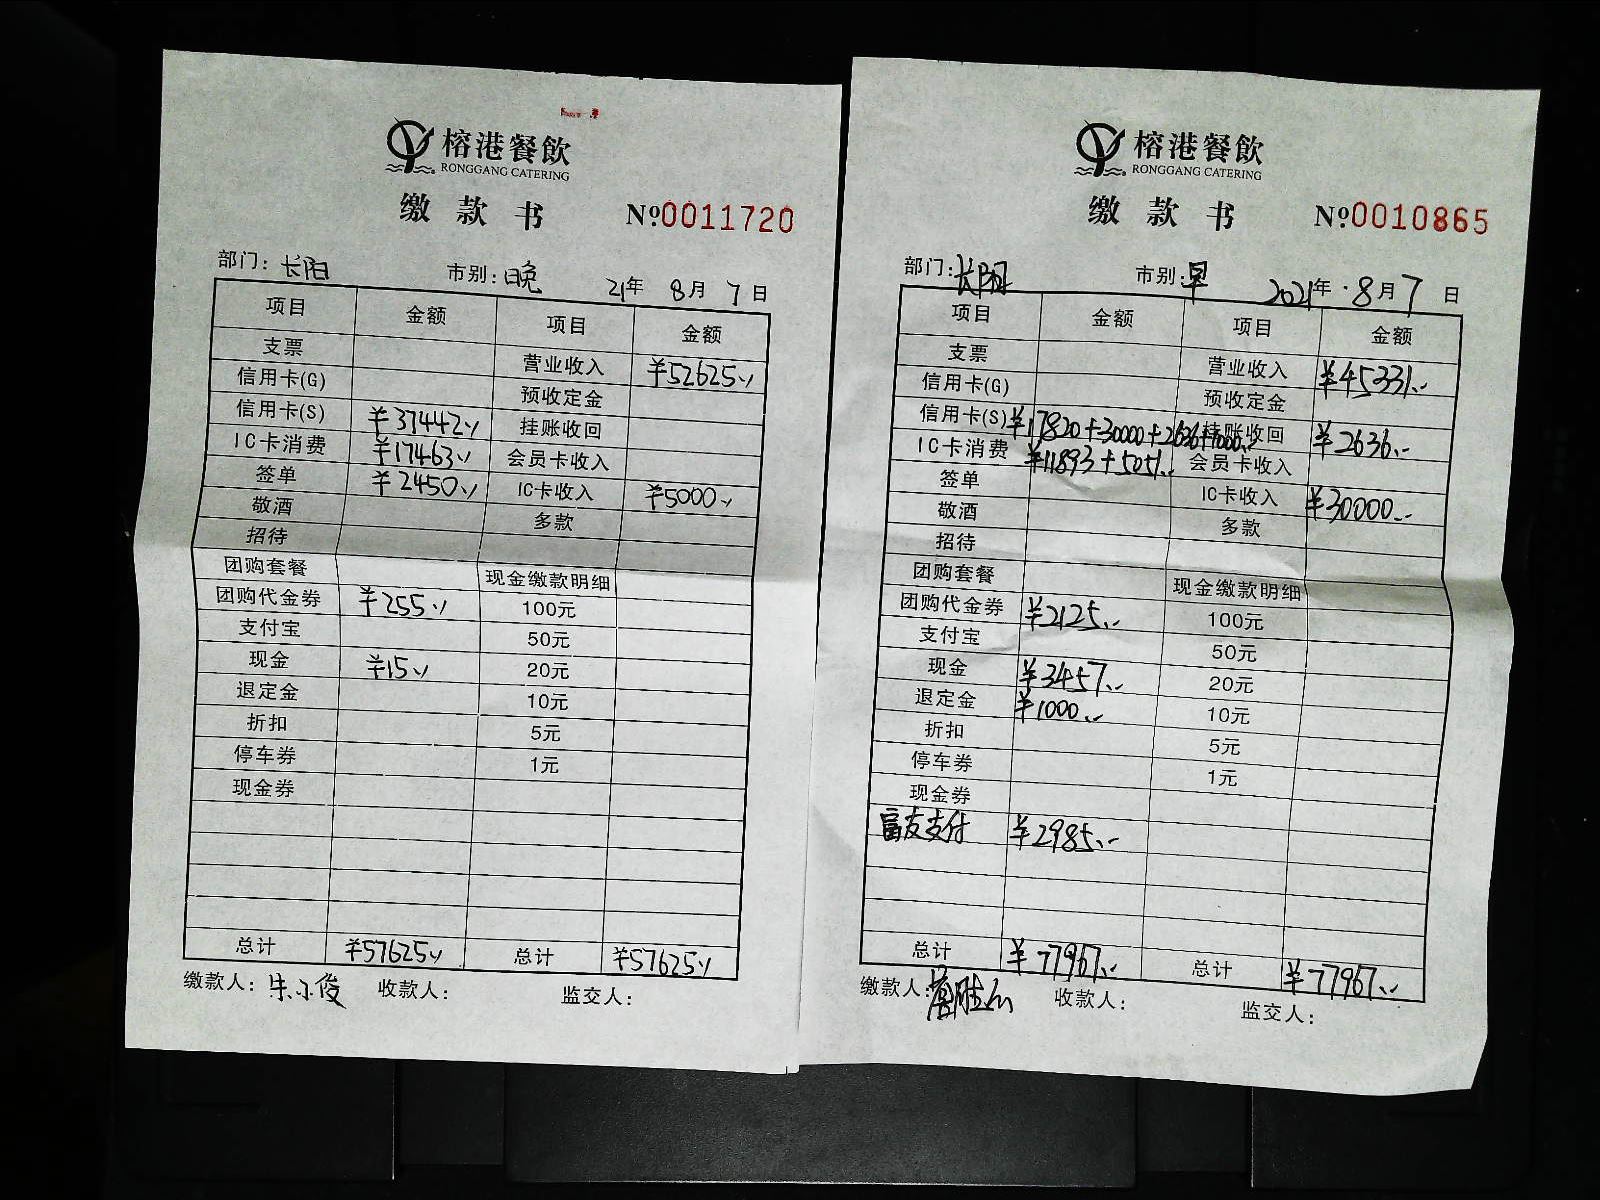 榕港餐飲
RONGGANG CATERING
缴款书 №0011720
部门：长阳 市别：晚 21年 8月 7日
项目 金额 项目 金额
支票 营业收入 ¥52625
信用卡(G) 预收定金
信用卡(S) ¥37442 挂账收回
IC卡消费 ¥17463 会员卡收入
签单 ¥2450 IC卡收入 ¥5000
敬酒 多款
招待
团购套餐 现金缴款明细
团购代金券 ¥255 100元
支付宝 50元
现金 ¥15 20元
退定金 10元
折扣 5元
停车券 1元
现金券
总计 ¥57625 总计 ¥57625
缴款人：朱小俊 收款人： 监交人：
榕港餐飲
RONGGANG CATERING
缴款书 №0010865
部门：长阳 市别：早 2021年·8月7日
项目 金额 项目 金额
支票 营业收入 ¥45331.-
信用卡(G) 预收定金
信用卡(S) ¥17820+30000+2636+1000.- 挂账收回 ¥2636.-
IC卡消费 ¥11893+5051.- 会员卡收入
签单 IC卡收入 ¥30000.-
敬酒 多款
招待
团购套餐 现金缴款明细
团购代金券 ¥2125.- 100元
支付宝 50元
现金 ¥3457.- 20元
退定金 ¥1000.- 10元
折扣 5元
停车券 1元
现金券
富友支付 ¥2985.-
总计 ¥77967.- 总计 ¥77967.-
缴款人： 收款人： 监交人：